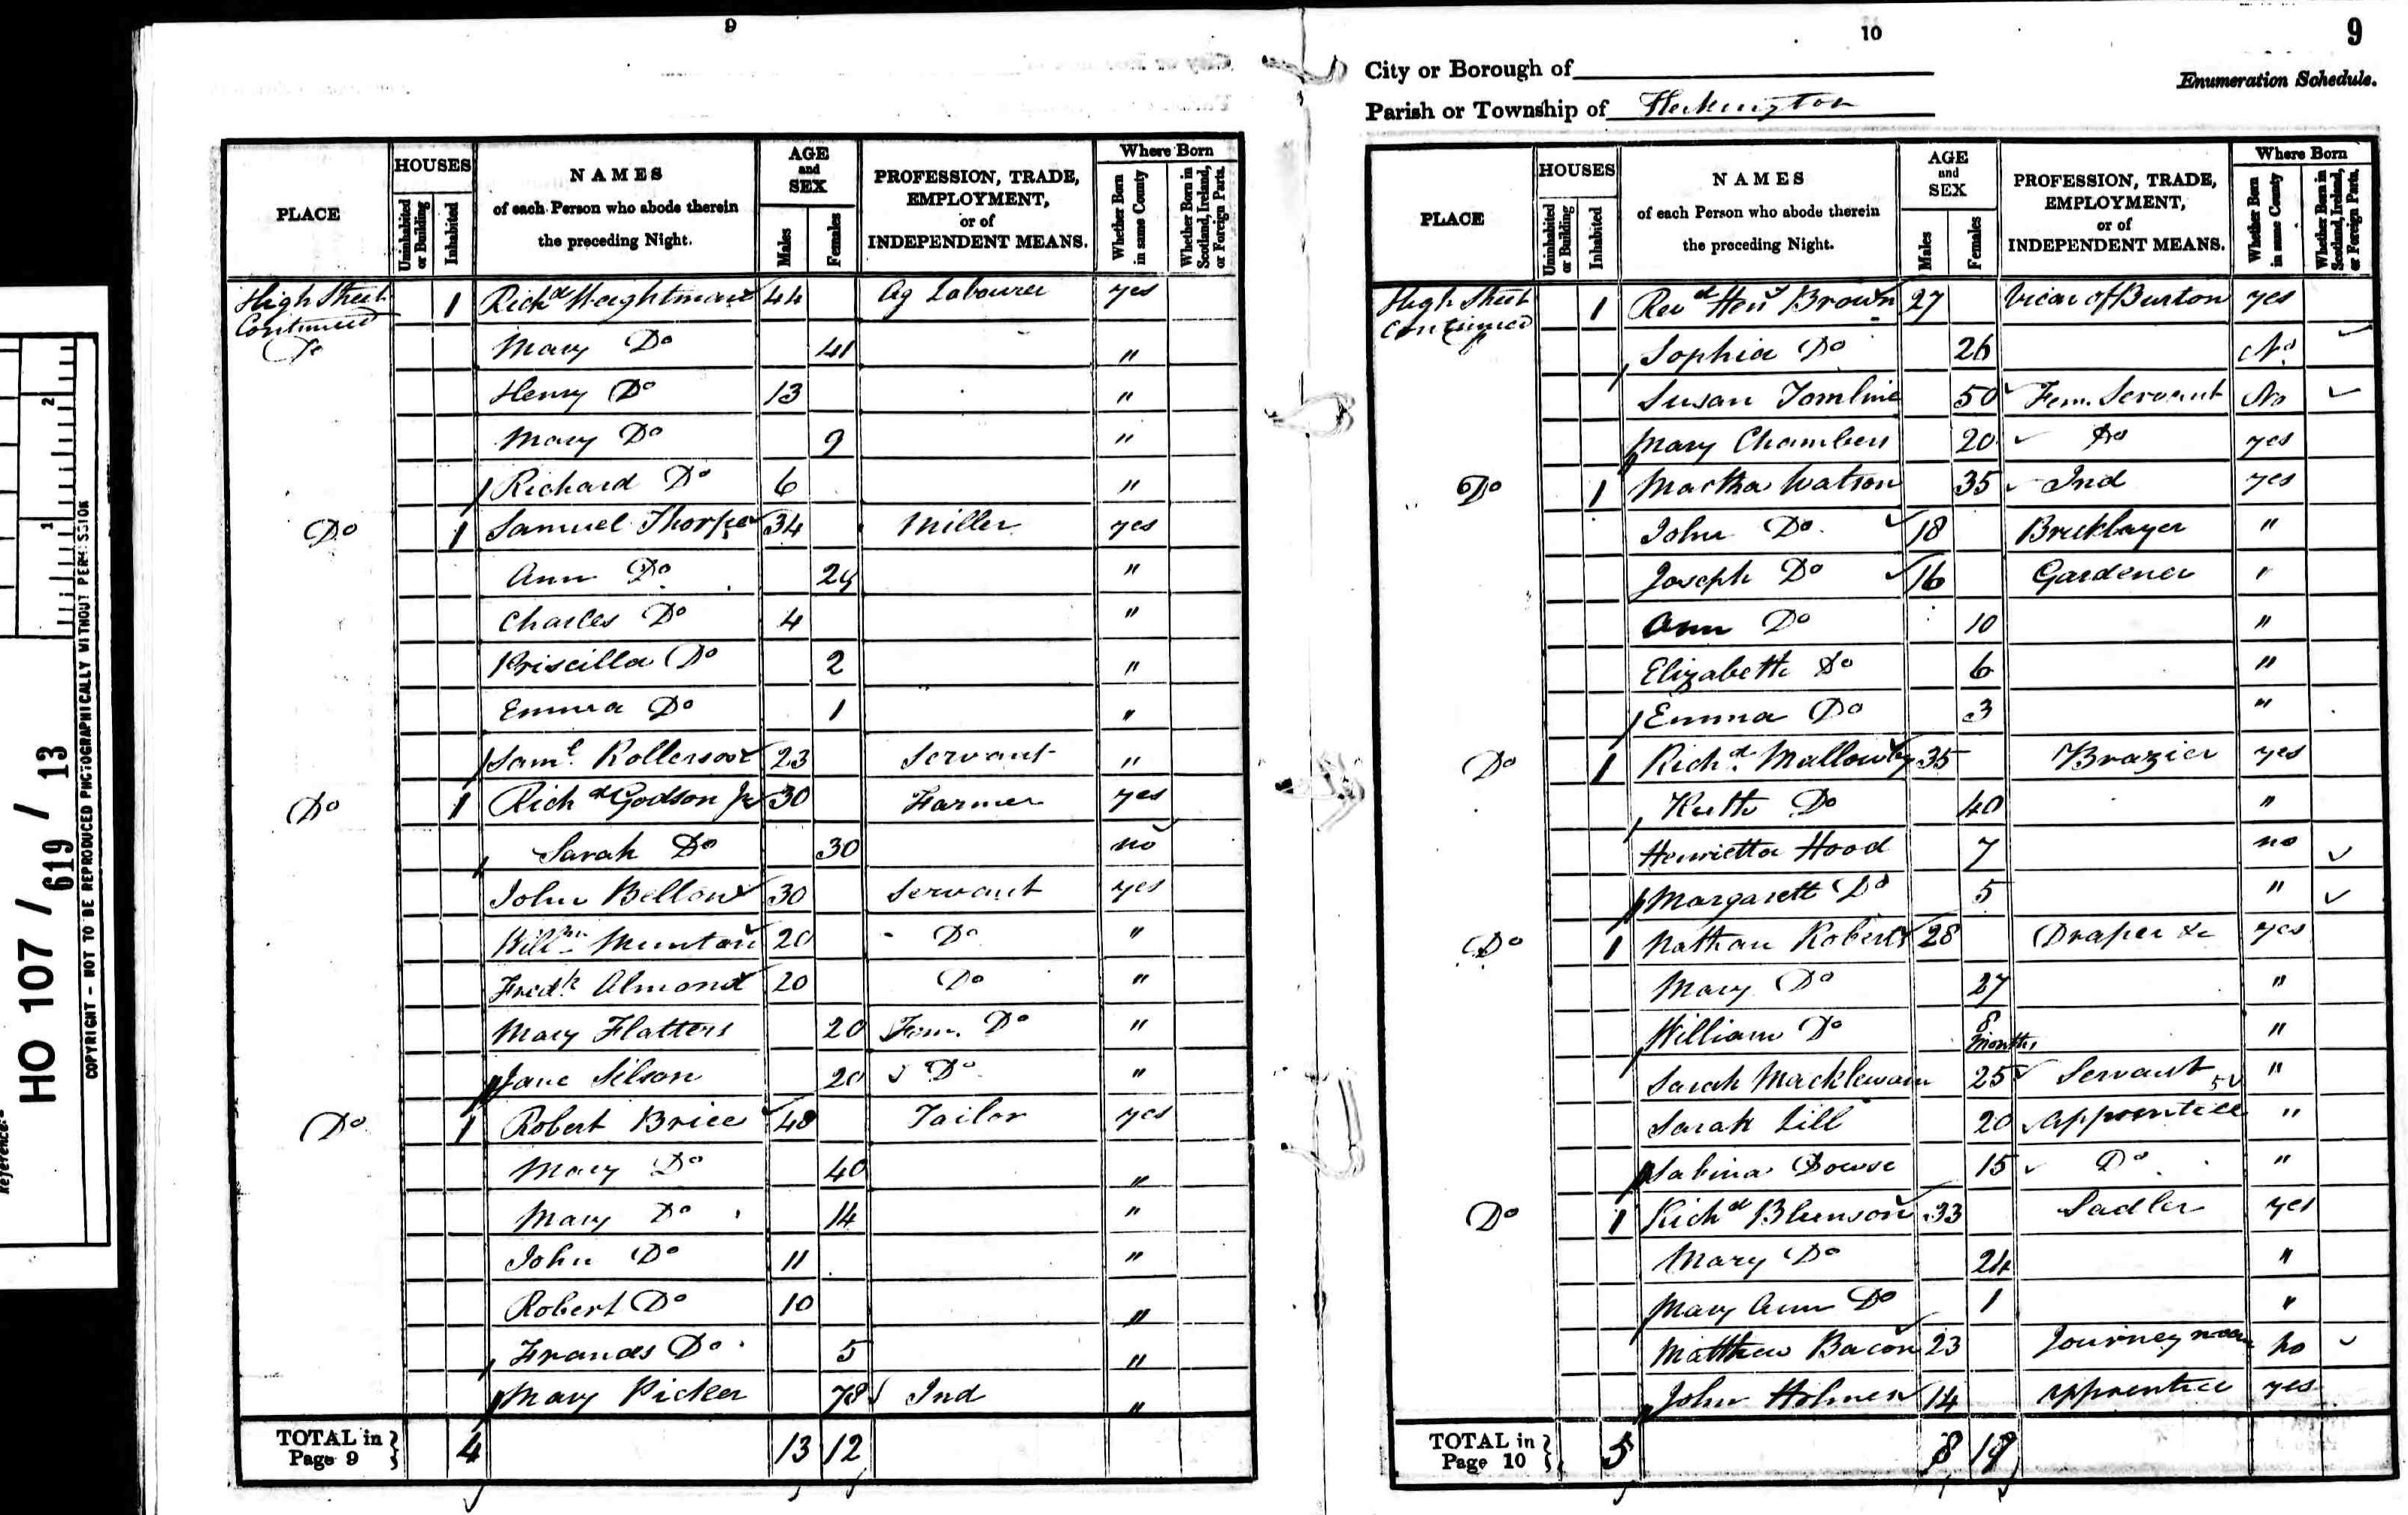 9
PLACE
HOUSES
Uninhabited or Building
Inhabited
NAMES
of each Person who abode therein
the preceding Night.
AGE
and
SEX
Males
Females
PROFESSION, TRADE,
EMPLOYMENT,
or of
INDEPENDENT MEANS.
Where Born
Whether Born in same County
Whether Born in Scotland, Ireland, or Foreign Parts.
High Street 1 Richd Weightman 44 Ag Labourer yes
Continued
Do Mary Do 41 "
Henry Do 13 "
Mary Do 9 "
Richard Do 6 "
Do 1 Samuel Thorpe 34 Miller yes
Ann Do 29 "
Charles Do 4 "
Priscilla Do 2 "
Emma Do 1 "
Saml Rollerson 23 Servant "
Do 1 Richd Godson Jr 30 Farmer yes
Sarah Do 30 no
John Bellow 30 Servant yes
Willm Munton 20 Do "
Fredk Almond 20 Do "
Mary Flatters 20 Fem. Do "
Jane Silson 20 Do "
Do 1 Robert Brice 48 Tailor yes
Mary Do 40 "
Mary Do 14 "
John Do 11 "
Robert Do 10 "
Frances Do 5 "
Mary Picker 78 Ind "
TOTAL in Page 9 4 13 12
10
9
City or Borough of
Enumeration Schedule.
Parish or Township of Heckington
PLACE
HOUSES
Uninhabited or Building
Inhabited
NAMES
of each Person who abode therein
the preceding Night.
AGE
and
SEX
Males
Females
PROFESSION, TRADE,
EMPLOYMENT,
or of
INDEPENDENT MEANS.
Where Born
Whether Born in same County
Whether Born in Scotland, Ireland, or Foreign Parts.
High Street 1 Revd Heny Brown 27 Vicar of Burton yes
Continued
Sophia Do 26 No
Susan Tomline 50 Fem. Servant No
Mary Chambers 20 Do yes
Do 1 Martha Watson 35 Ind yes
John Do 18 Bricklayer "
Joseph Do 16 Gardener "
Ann Do 10 "
Elizabeth Do 6 "
Emma Do 3 "
Do 1 Richd Mallowby 35 Brazier yes
Ruth Do 40 "
Henrietta Hood 7 no
Margarett Do 5 "
Do 1 Nathan Roberts 28 Draper &c yes
Mary Do 27 "
William Do 8 months "
Sarah Macklewain 25 Servant "
Sarah Lill 20 Apprentice "
Sabina Dowse 15 Do "
Do 1 Richd Blunson 33 Sadler yes
Mary Do 24 "
Mary Ann Do 1 "
Matthew Bacon 23 Journeyman no
John Holmes 14 Apprentice yes
TOTAL in Page 10 5 8
Reference:-
HO 107 / 619 / 13
COPYRIGHT - NOT TO BE REPRODUCED PHOTOGRAPHICALLY WITHOUT PERMISSION
1
2